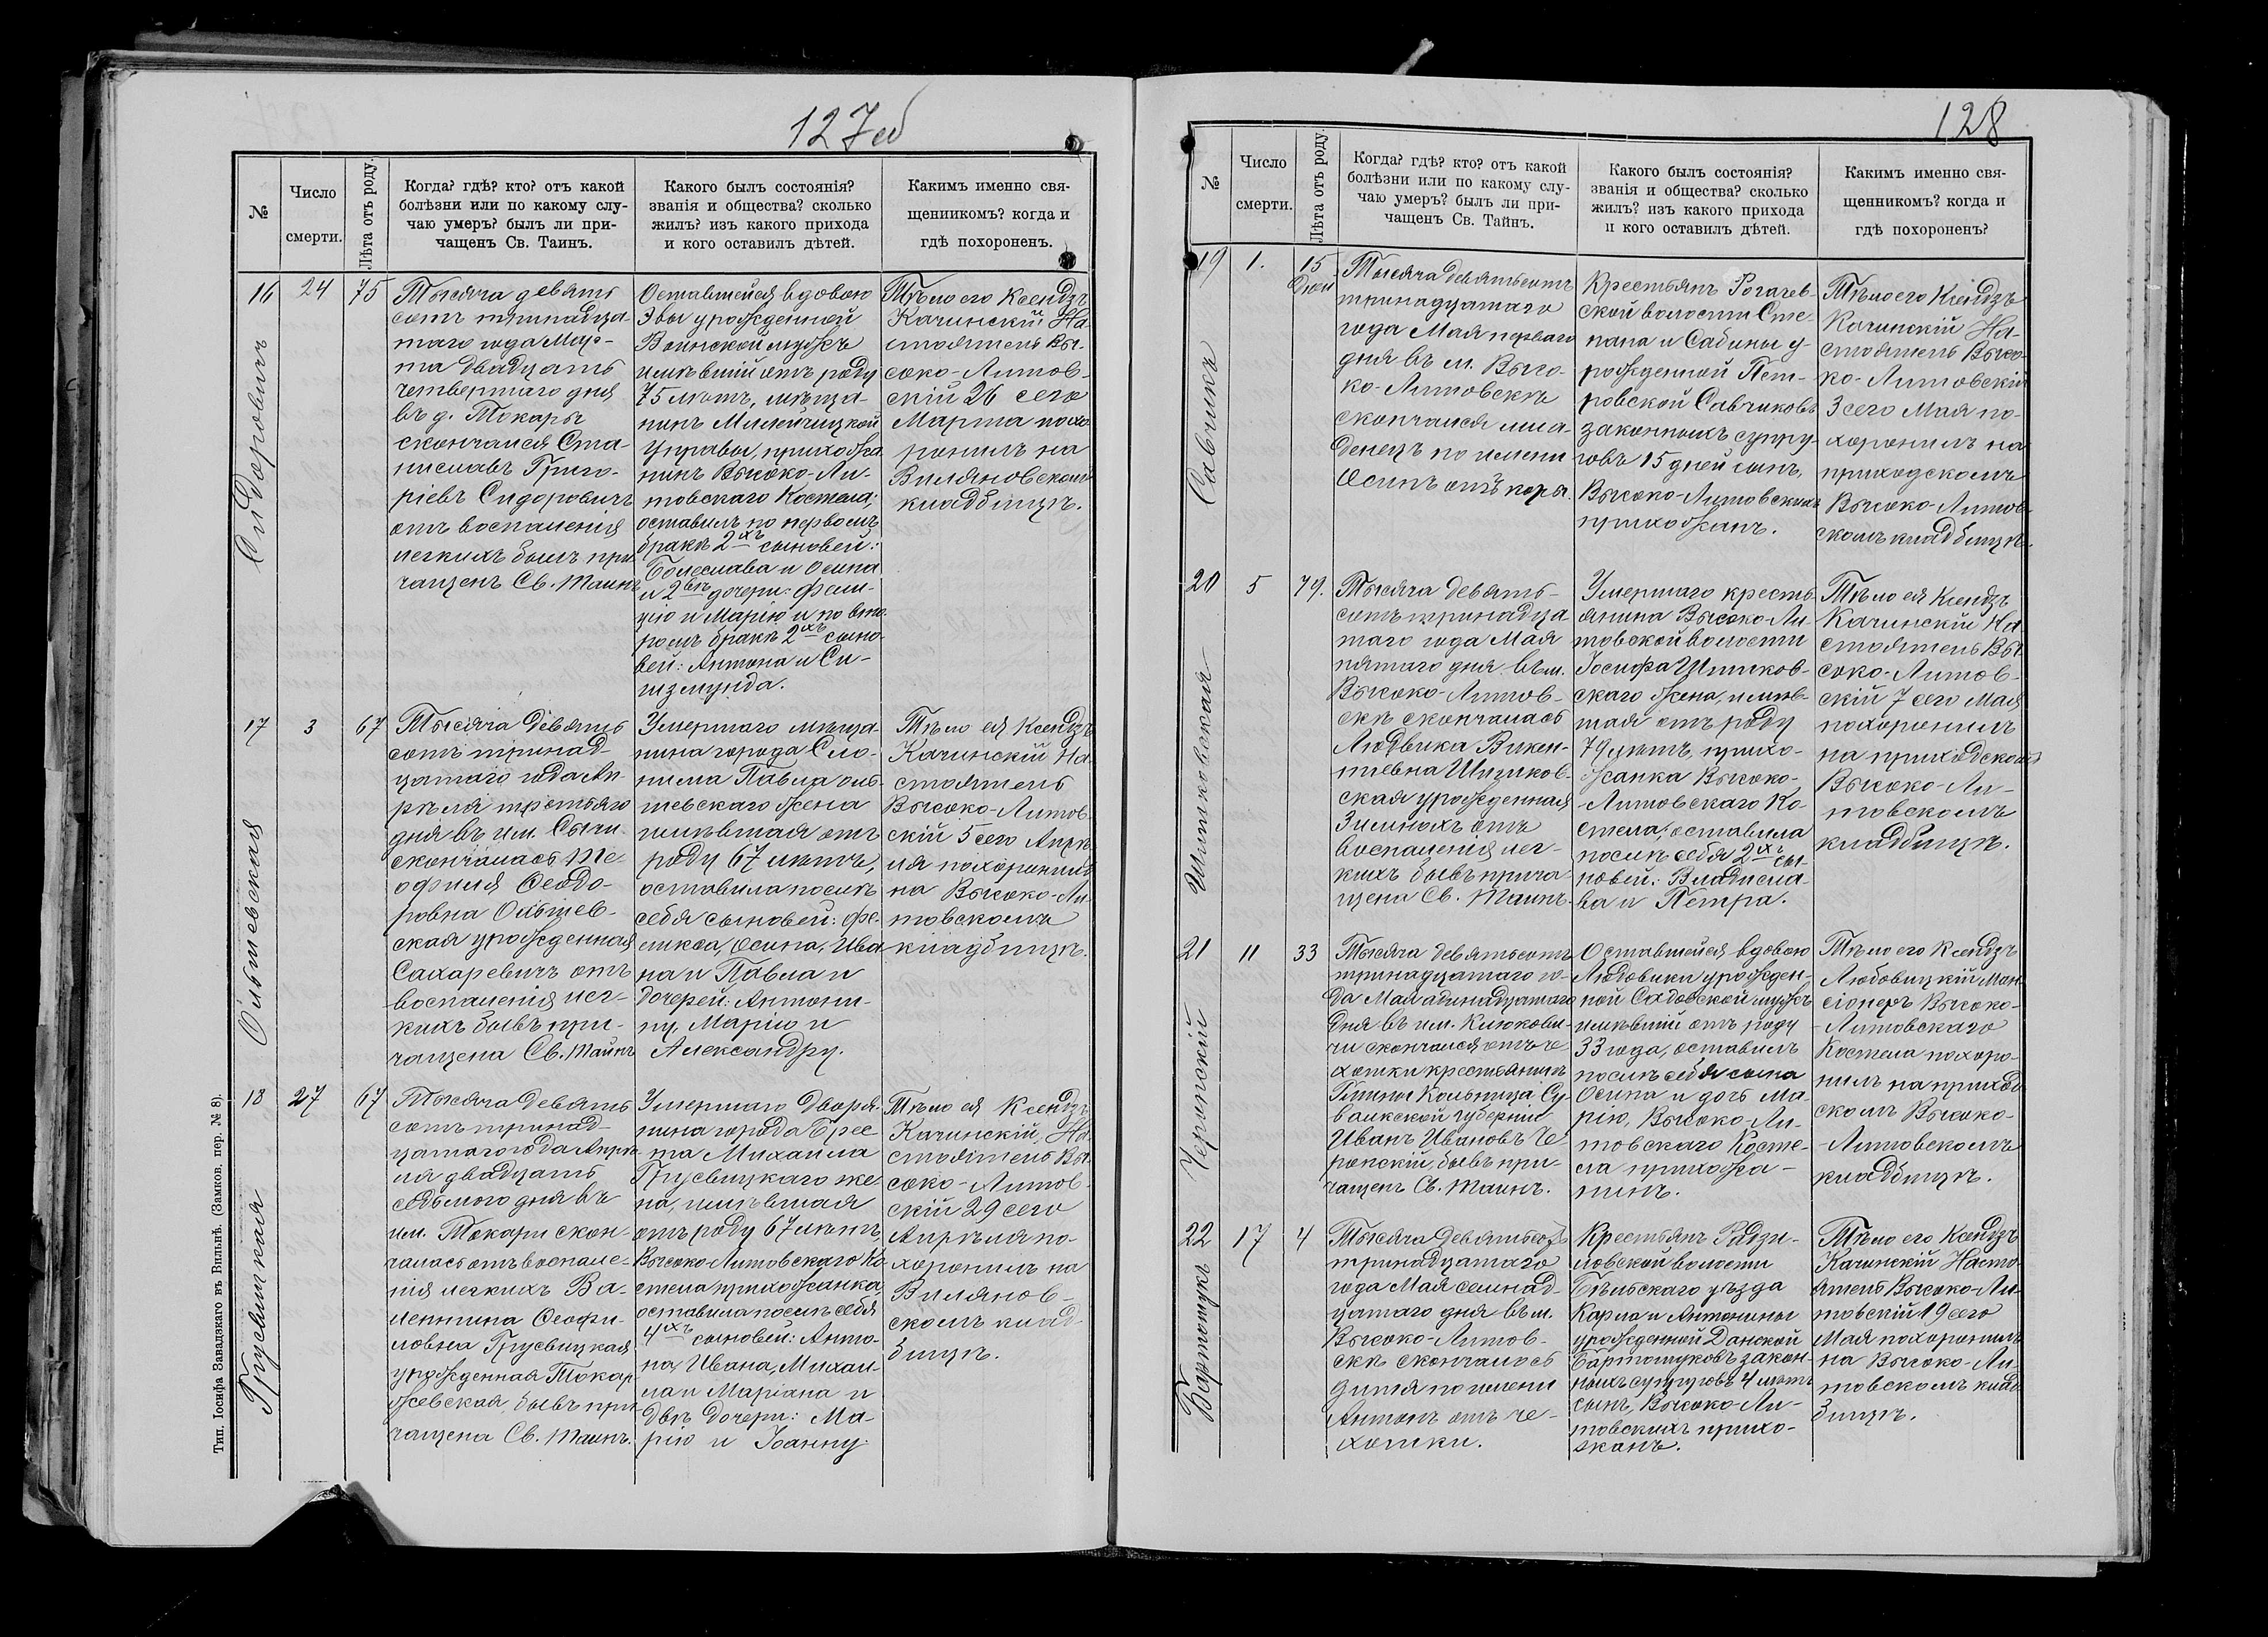 127об
№
Число
смерти.
Лѣта отъ роду.
Когда? гдѣ? кто? отъ какой
болѣзни или по какому слу-
чаю умеръ? былъ ли при-
чащенъ Св. Таинъ.
Какого былъ состоянія?
званія и общества? сколько
жилъ? изъ какого прихода
и кого оставилъ дѣтей.
Какимъ именно свя-
щенникомъ? когда и
гдѣ похороненъ.
16
24
75
Сидоровичъ
Тысяча девять
сотъ тринадца-
таго года Мар-
та двадцать
четвертаго дня
въ д. Токары
скончался Ста-
ниславъ Григо-
ріевъ Сидоровичъ
отъ воспаленія
легкихъ былъ при-
чащенъ Св. Таинъ
Оставшейся вдовою
Эвы урожденной
Воинской мужъ
имѣвшій отъ роду
75 лѣтъ, мѣща-
нинъ Милейчицкой
Управы, прихожа
нинъ Высоко-Ли-
товскаго Костела;
оставилъ по первомъ
бракѣ 2хъ сыновей:
Болеслава и Осипа
и 2вѣ дочери: Фели-
цію и Марію и по вто
ромъ бракѣ 2хъ сыно-
вей: Антона и Си-
гизмунда.
Тѣло его Ксендзъ
Качинскій На-
стоятель Вы-
соко-Литов-
скій 26 сего
Марта похо
ронилъ на
Виляновскомъ
кладбищѣ.
17
3
67
Ольшевская
Тысяча девять
сотъ тринад-
цатаго года Ап-
рѣля третьяго
дня въ им. Сычи
скончалась Те-
офиля Феодо-
ровна Ольшев-
ская урожденная
Сахаревичъ отъ
воспаленія лег-
кихъ бывъ при-
чащена Св. Таинъ
Умершаго мѣща-
нина города Сло-
нима Павла Оль-
шевскаго жена
имѣвшая отъ
роду 67 лѣтъ,
оставила послѣ
себя сыновей: Фе-
ликса, Осипа, Ива
на и Павла и
дочерей: Антони-
ну, Марію и
Александру.
Тѣло ея Ксендзъ
Качинскій На-
стоятель
Высоко-Литов
скій 5 сего Апрѣ
ля похоронилъ
на Высоко-Ли-
товскомъ
кладбищѣ.
18
27
67
Грусвицкая
Тысяча девять
сотъ тринад-
цатаго года Апрѣ-
ля двадцать
седьмого дня въ
им. Токари скон-
чалась отъ воспале-
нія легкихъ Ва-
лентина Феофи-
ловна Грусвицкая
урожденная Токар
жевская, бывъ при-
чащена Св. Таинъ.
Умершаго Дворя-
нина города Брес
та Михаила
Грусвицкаго же-
на, имѣвшая
отъ роду 67 лѣтъ,
Высоко-Литовскаго Ко
стела прихожанка,
оставила послѣ себя
4хъ сыновей: Анто-
на, Ивана, Михаи-
ла и Маріана и
двѣ дочери: Ма-
рію и Іоанну.
Тѣло ея Ксендзъ
Качинскій, На-
стоятель Вы-
соко-Литов-
скій 29 сего
Апрѣля по-
хоронилъ на
Вилянов-
скомъ клад-
бищѣ.
Тип. Іосифа Завадзкаго въ Вильнѣ. (Замков. пер. № 8).
128
№
Число
смерти.
Лѣта отъ роду.
Когда? гдѣ? кто? отъ какой
болѣзни или по какому слу-
чаю умеръ? былъ ли при-
чащенъ Св. Тайнъ.
Какого былъ состоянія?
званія и общества? сколько
жилъ? изъ какого прихода
и кого оставилъ дѣтей.
Какимъ именно свя-
щенникомъ? когда и
гдѣ похороненъ?
19
1.
15
дней
Савчикъ
Тысяча девятьсотъ
тринадцатаго
года Мая перваго
дня въ м. Высо-
ко-Литовскѣ
скончался мла-
денецъ по имени
Осипъ отъ коры.
Крестьянъ Рогачев-
ской волости Сте-
пана и Сабины у-
рожденной Пет-
ровской Савчиковъ
законныхъ супру-
говъ 15 дней сынъ,
Высоко-Литовскихъ
прихожанъ.
Тѣло его Ксендзъ
Качинскій На-
стоятель Высо-
ко-Литовскій
3 сего Мая по-
хоронилъ на
приходскомъ
Высоко-Литов-
скомъ кладбищѣ.
20
5
79.
Тысяча девять-
сотъ тринадца
таго года Мая
пятаго дня въ м.
Высоко-Литов-
скѣ скончалась
Людвика Викен-
тіевна
ская урожденная
Зимнохъ отъ
воспаленія лег-
кихъ бывъ прича-
щена Св. Таинъ.
Умершаго кресть-
янина Высоко-Ли-
товской волости
Іосифа
скаго жена, имѣв-
шая отъ роду
79 лѣтъ, прихо-
жанка Высоко-
-Литовскаго Ко-
стела; оставила
послѣ себя 2хъ сы-
новей: Владисла-
ва и Петра.
Тѣло ея Ксендзъ
Качинскій На-
стоятель Вы-
соко-Литов-
скій 7 сего Мая
похоронилъ
на приходскомъ
Высоко-Ли-
товскомъ
кладбищѣ.
21
11
33
Черопскій
Тысяча девятьсотъ
тринадцатаго го-
да Мая одинадцатаго
дня въ им. Клюкови-
чи скончался отъ че-
хотки крестьянинъ
Гмины Кольница Су-
валкской губерніи
Иванъ Ивановъ Че-
ропскій, бывъ при-
чащенъ Св. Таинъ.
Оставшейся вдовою
Людовики урожден-
ной Садовской мужъ
имѣвшій отъ роду
33 года, оставилъ
послѣ себя сына
Осипа и дочь Ма-
рію, Высоко-Ли-
товскаго Косте-
ла прихожа-
нинъ.
Тѣло его Ксендзъ
Любовицкій Ман-
сіонеръ Высоко-
-Литовскаго
Костела похоро-
нилъ на приход-
скомъ Высоко-
-Литовскомъ
кладбищѣ.
22
17
4
Бартошукъ
Тысяча девятьсотъ
тринадцатаго
года Мая семнад-
цатаго дня въ м.
Высоко-Литов-
скѣ скончалось
дитя по имени
Антонъ отъ че-
хотки.
Крестьянъ Радзи-
ловской волости
Бѣльскаго уѣзда
Карла и Антонины
урожденной Данской
Бартошуковъ закон-
ныхъ супруговъ 4 лѣтъ
сынъ, Высоко-Ли-
товскихъ прихо-
жанъ.
Тѣло его Ксендзъ
Качинскій Насто-
ятель Высоко-Ли-
товскій 19 сего
Мая похоронилъ
на Высоко-Ли-
товскомъ клад-
бищѣ.